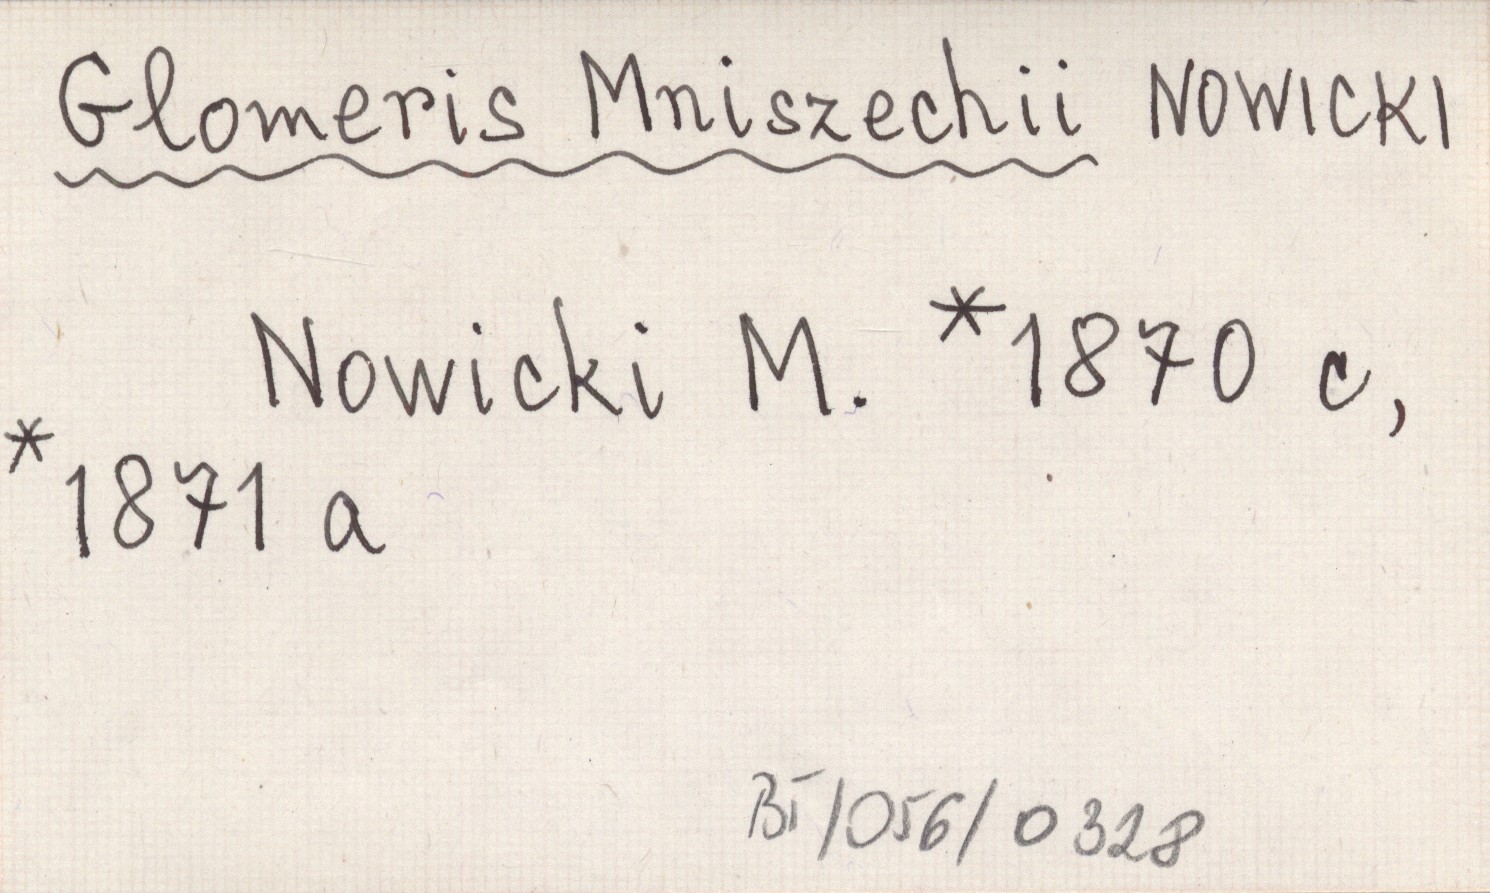 Glomeris Mniszechii NOWICKI
Nowicki M. *1870 c,
*1871 a
BI/056/0328